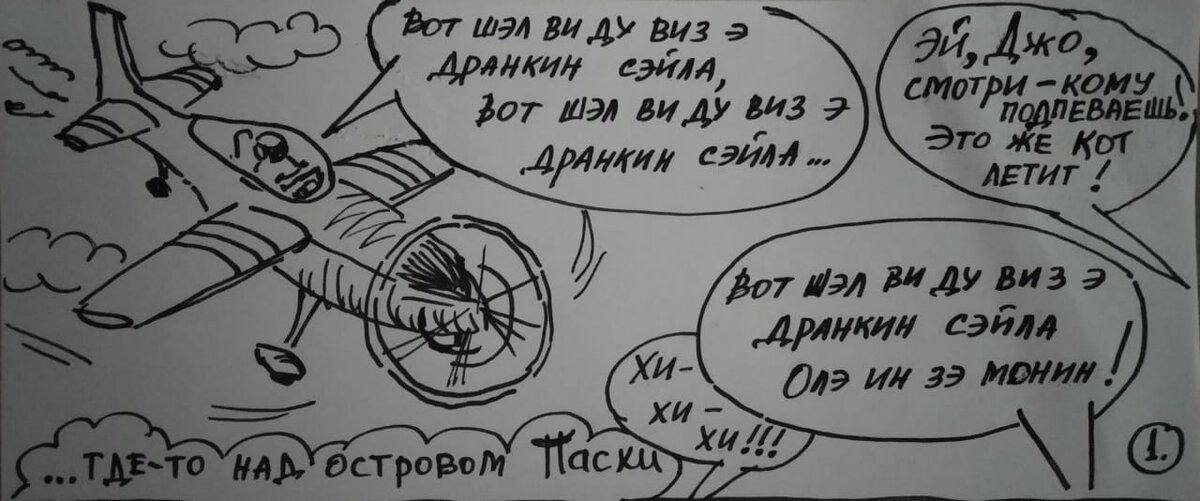 ВОТ ШЭЛ ВИ ДУ ВИЗ Э
ДРАНКИН СЭЙЛА,
ВОТ ШЭЛ ВИ ДУ ВИЗ Э
ДРАНКИН СЭЙЛА...
ЭЙ, ДЖО,
СМОТРИ - КОМУ
ПОДПЕВАЕШЬ!
ЭТО ЖЕ КОТ
ЛЕТИТ!
ВОТ ШЭЛ ВИ ДУ ВИЗ Э
ДРАНКИН СЭЙЛА
ОЛЭ ИН ЗЭ МОНИН!
ХИ-
ХИ-
ХИ!!!
...ГДЕ-ТО НАД ОСТРОВОМ Пасхи
1.